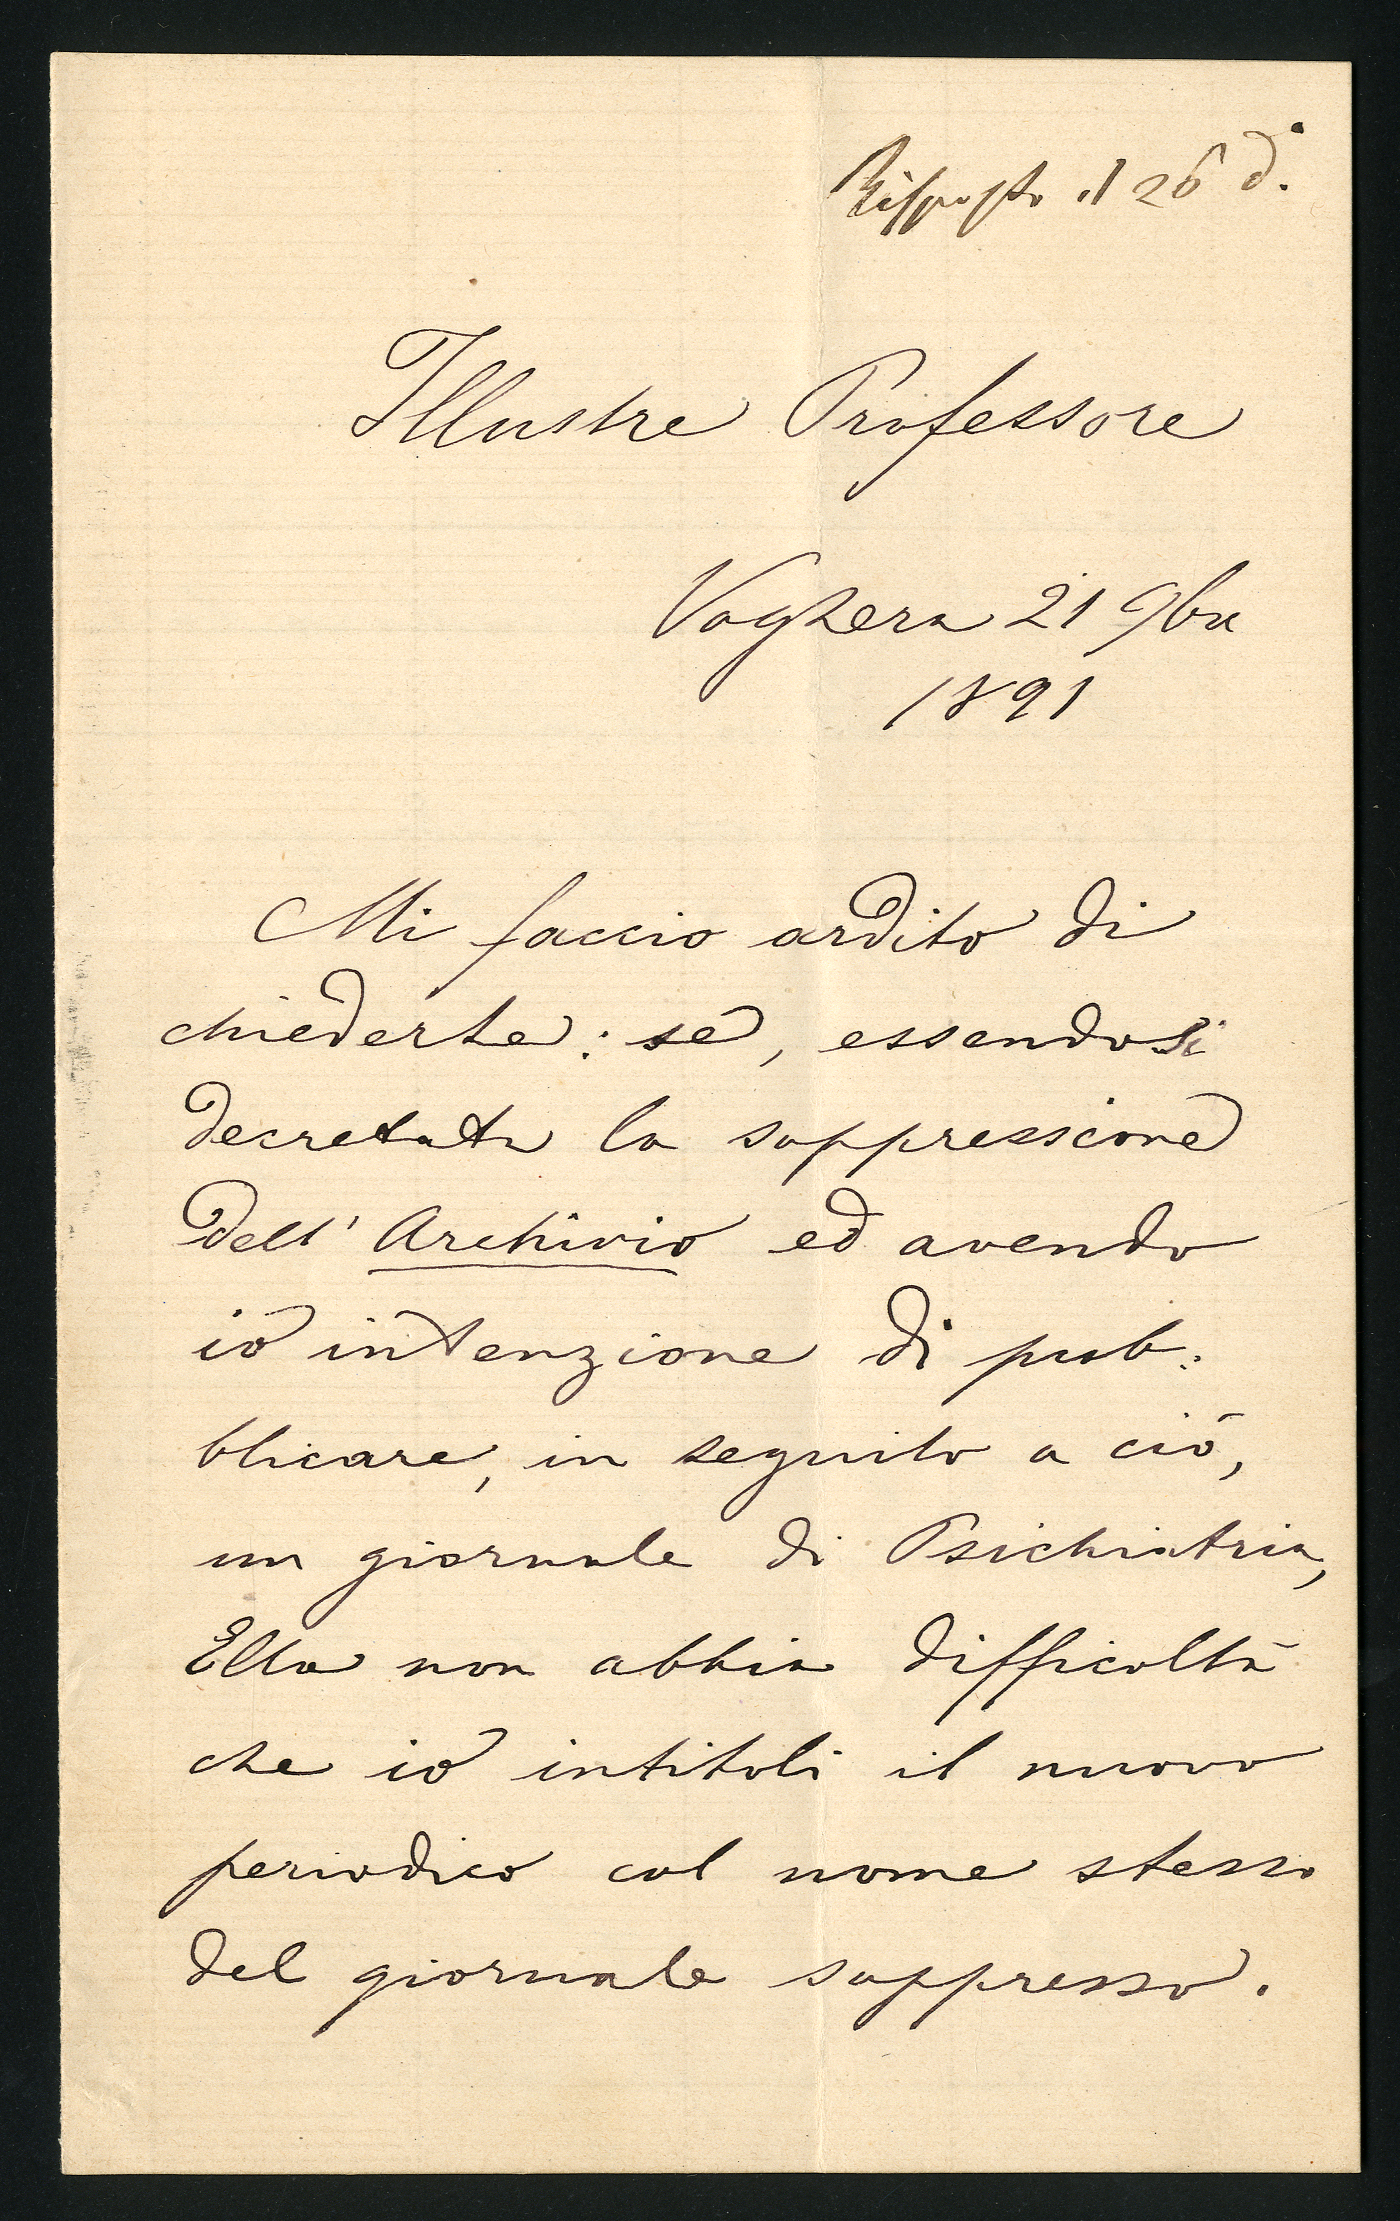 Risposto il 26 d.°
Illustre Professore
Voghera 21 9bre
1891
Mi faccio ardito di
chiederle: se, essendosi
decretata la soppressione
dell' Archivio ed avendo
io intenzione di pub-
blicare, in seguito a ciò,
un giornale di Psichiatria,
Ella non abbia difficoltà
che io intitoli il nuovo
periodico col nome stesso
del giornale soppresso.